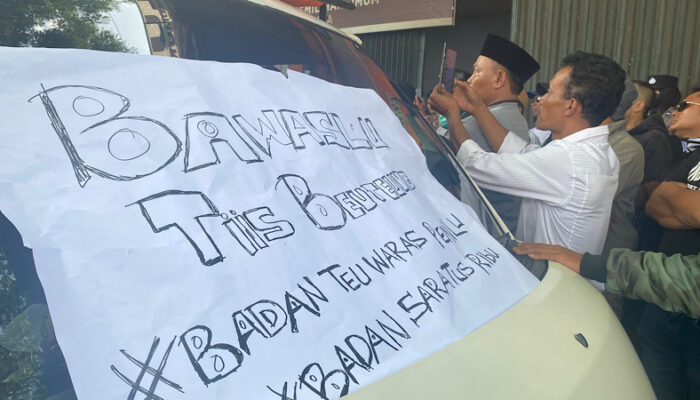 BAWASLU
TiiS BEUTEUNG
#BADAN TEU WARAS PEMILU
#BADAN SARATUS RIBU